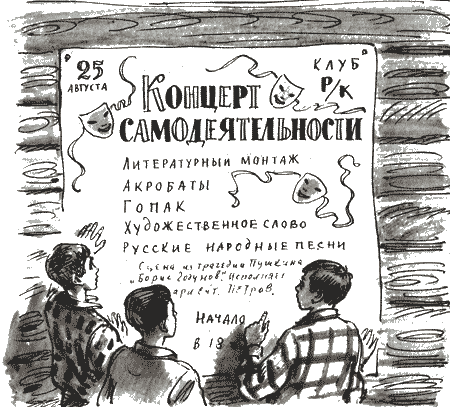 25
АВГУСТА
КЛУБ
Р/К
КОНЦЕРТ
САМОДЕЯТЕЛЬНОСТИ
ЛИТЕРАТУРНЫЙ МОНТАЖ
АКРОБАТЫ
ГОПАК
ХУДОЖЕСТВЕННОЕ СЛОВО
РУССКИЕ НАРОДНЫЕ ПЕСНИ
Сцена из трагедии Пушкина
„Борис Годунов“ исполняет
Петров.
НАЧАЛО
В 18